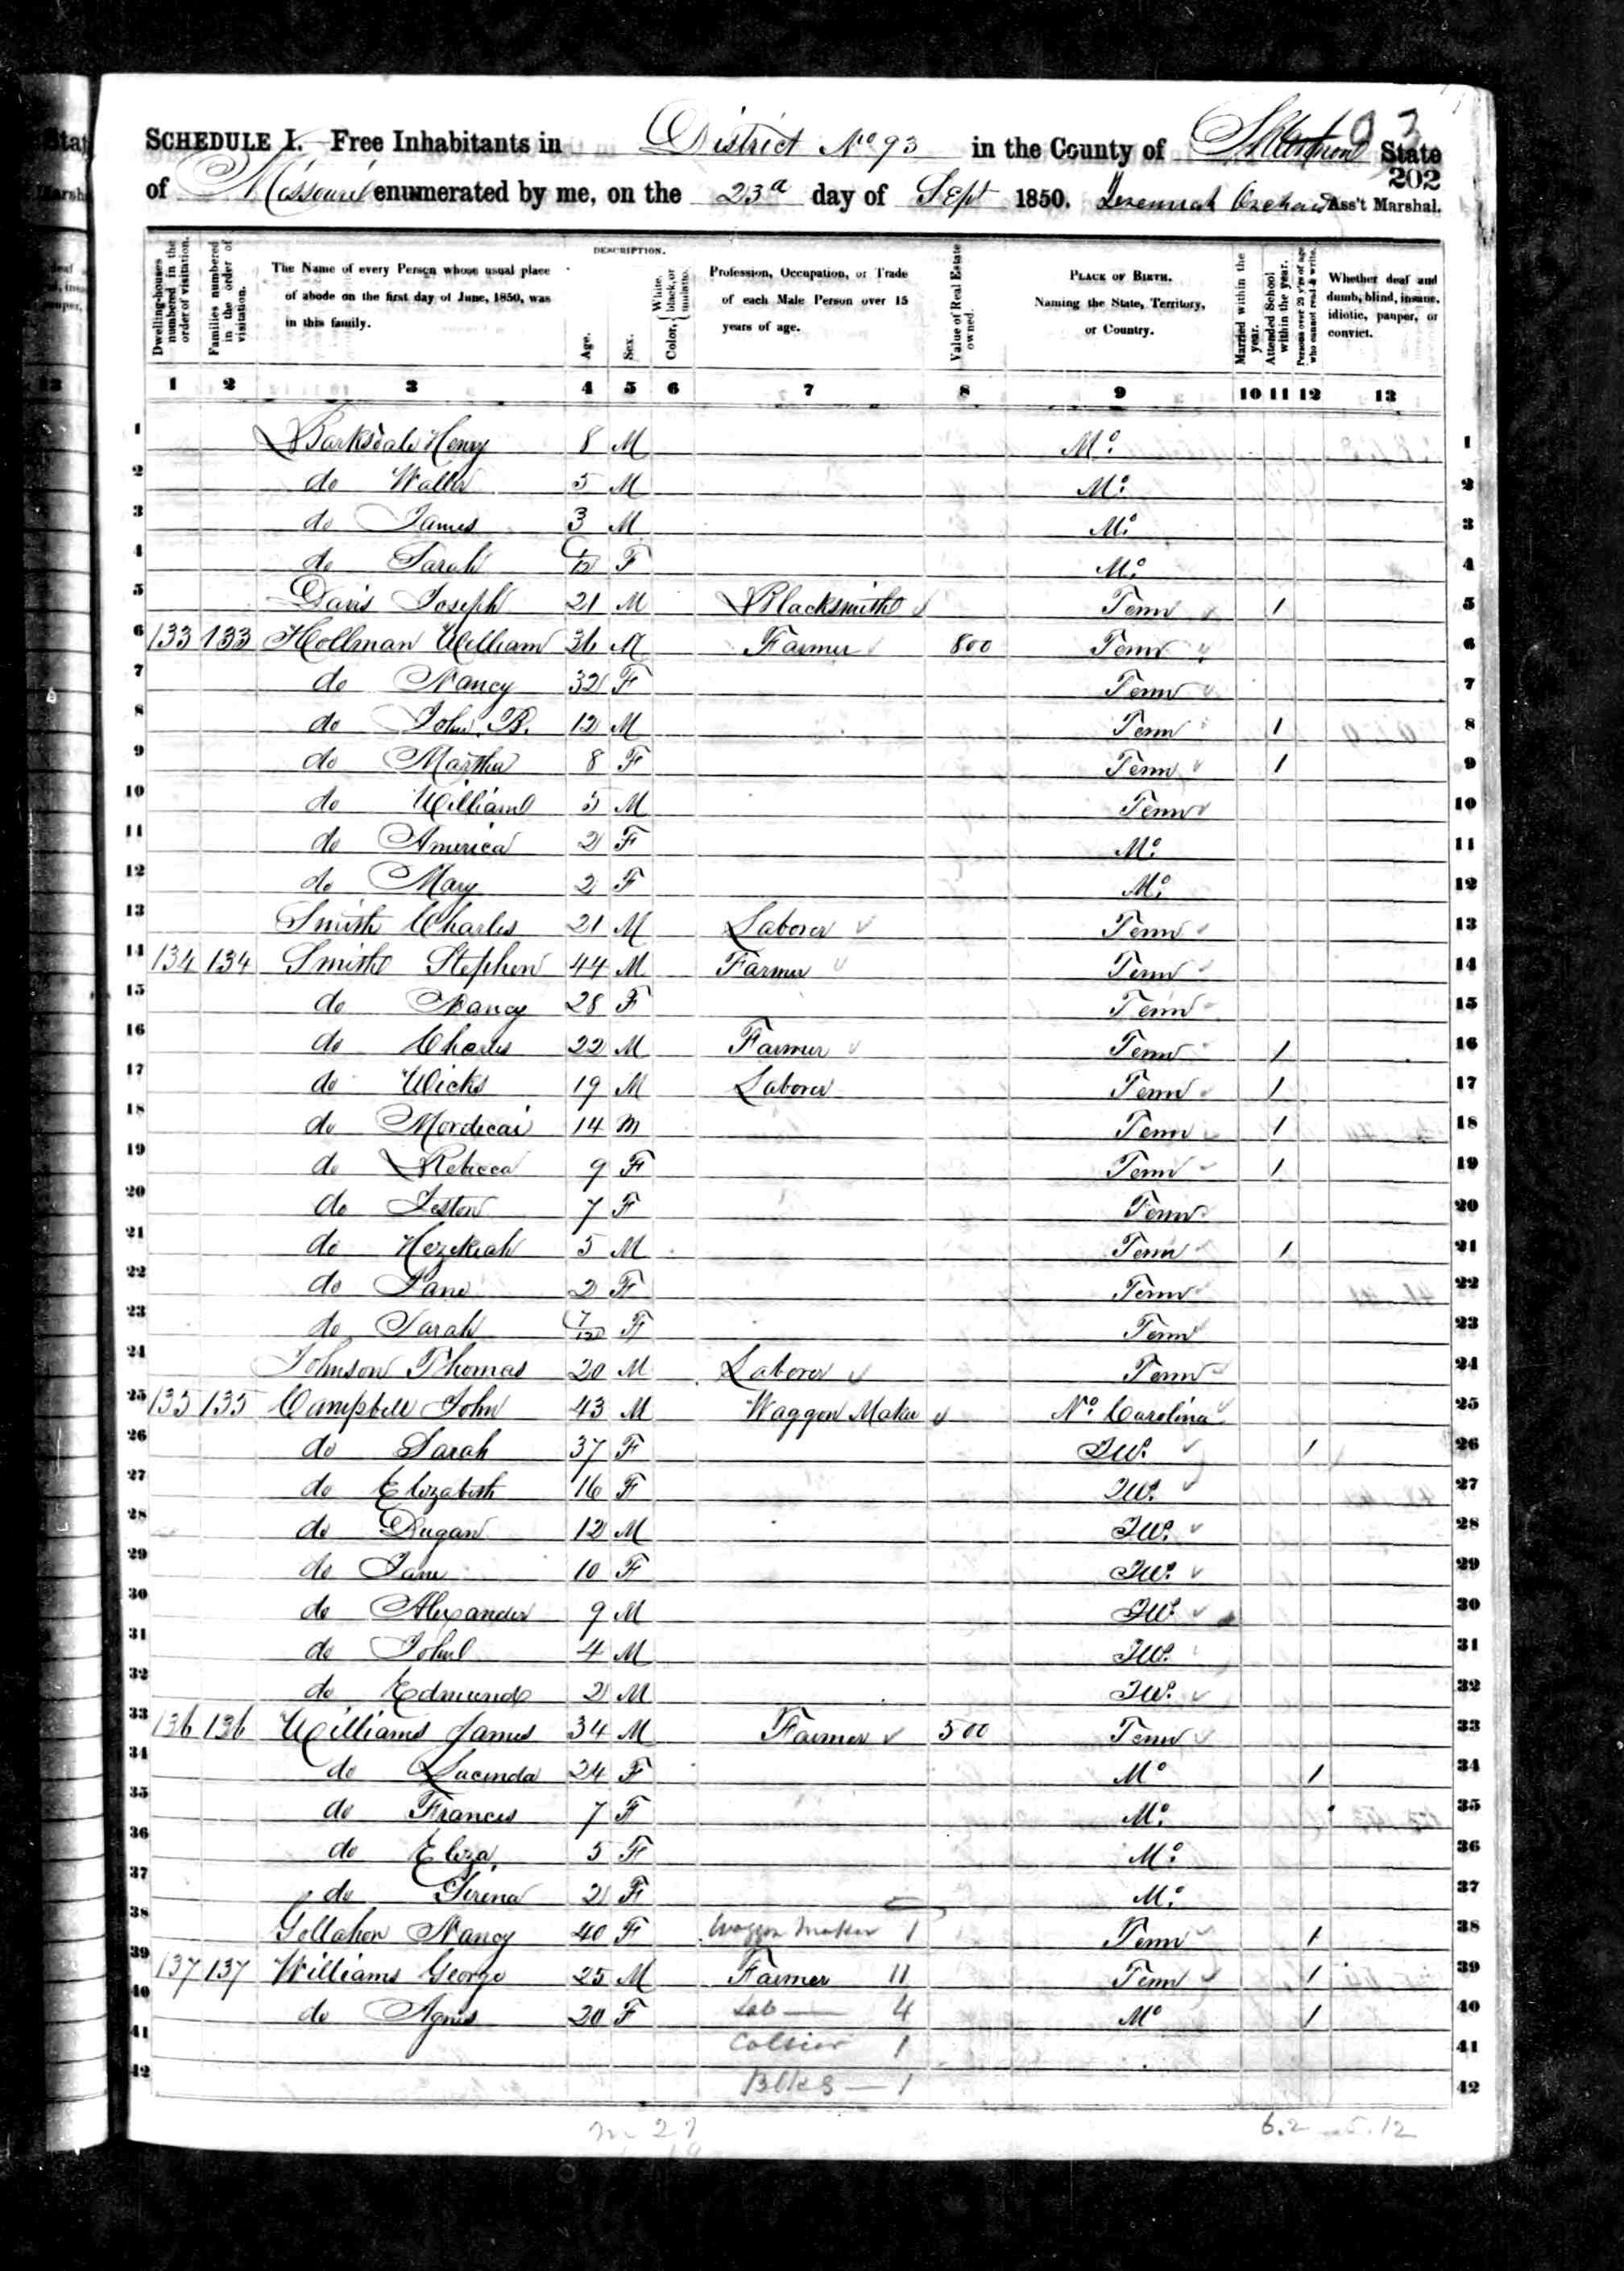 SCHEDULE I. Free Inhabitants in District No 93 in the County of State
202
of Missouri enumerated by me, on the 23d day of Sept 1850. Jeremiah Orchard Ass't Marshal.
Dwelling-houses numbered in the order of visitation.
Families numbered in the order of visitation.
The Name of every Person whose usual place of abode on the first day of June, 1850, was in this family.
DESCRIPTION.
Age.
Sex.
Color, White, black, or mulatto.
Profession, Occupation, or Trade of each Male Person over 15 years of age.
Value of Real Estate owned.
PLACE OF BIRTH. Naming the State, Territory, or Country.
Married within the year.
Attended School within the year.
Persons over 20 y'rs of age who cannot read & write.
Whether deaf and dumb, blind, insane, idiotic, pauper, or convict.
1 2 3 4 5 6 7 8 9 10 11 12 13
1 Barksdale Henry 8 M Mo. 1
2 do Walter 5 M Mo. 2
3 do James 3 M Mo. 3
4 do Sarah /12 F Mo. 4
5 Davis Joseph 21 M Blacksmith Tenn 1 5
6 133 133 Hollman William 36 M Farmer 800 Tenn 6
7 do Nancy 32 F Tenn 7
8 do John B. 12 M Tenn 1 8
9 do Martha 8 F Tenn 1 9
10 do William 5 M Tenn 10
11 do America 2 F Mo. 11
12 do Mary 2 F Mo. 12
13 Smith Charles 21 M Laborer Tenn 13
14 134 134 Smith Stephen 44 M Farmer Tenn 14
15 do Nancy 28 F Tenn 15
16 do Charles 22 M Farmer Tenn 1 16
17 do Wicks 19 M Laborer Tenn 1 17
18 do Mordecai 14 M Tenn 1 18
19 do Rebecca 9 F Tenn 1 19
20 do 7 F Tenn 20
21 do Hezekiah 5 M Tenn 1 21
22 do Jane 2 F Tenn 22
23 do Sarah 7/12 F Tenn 23
24 Johnson Thomas 20 M Laborer Tenn 24
25 135 135 Campbell John 43 M Waggon Maker No. Carolina 25
26 do Sarah 37 F Ill. 1 26
27 do Elizabeth 16 F Ill. 27
28 do Dugan 12 M Ill. 28
29 do Jane 10 F Ill. 29
30 do Alexander 9 M Ill. 30
31 do John 4 M Ill. 31
32 do Edmund 2 M Ill. 32
33 136 136 Williams James 34 M Farmer 500 Tenn 33
34 do Lucinda 24 F Mo 1 34
35 do Frances 7 F Mo. 35
36 do Eliza 5 F Mo. 36
37 do Serena 2 F Mo. 37
38 Gollahor Nancy 40 F Waggon Maker 1 Tenn 1 38
39 137 137 Williams George 25 M Farmer 11 Tenn 1 39
40 do Agnes 20 F Lab — 4 Mo 1 40
41 Collier 1 41
42 Blks — 1 42
m 27 6.2 5.12